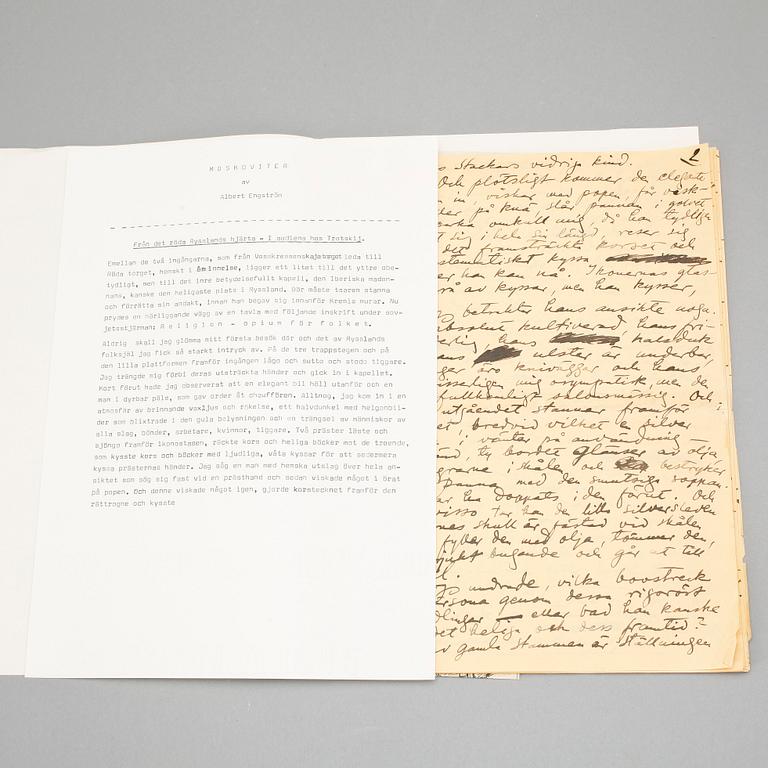 MOSKOVITER
av
Albert Engström
Från det röda Rysslands hjärta - I audiens hos Trotskij.
Emellan de två ingångarna, som från Vosskressenskajatorget leda till
Röda torget, hemskt i åminnelse, ligger ett litet till det yttre obe-
tydligt, men till det inre betydelsefullt kapell, den Iberiska madon-
nans, kanske den heligaste plats i Ryssland. Där måste tsaren stanna
och förrätta sin andakt, innan han begav sig innanför Kremls murar. Nu
prydes en närliggande vägg av en tavla med följande inskrift under sov-
jetsstjärnan: Religion - opium för folket.
Aldrig skall jag glömma mitt första besök där och det av Rysslands
folksjäl jag fick så starkt intryck av. På de tre trappstegen och på
den lilla plattformen framför ingången lågo och sutto och stodo tiggare.
Jag trängde mig förbi deras utsträckta händer och gick in i kapellet.
Kort förut hade jag observerat att en elegant bil höll utanför och en
man i dyrbar päls, som gav order åt chauffören. Alltnog, jag kom in i en
atmosfär av brinnande vaxljus och rökelse, ett halvdunkel med helgonbil-
der som blixtrade i den gula belysningen och en trängsel av människor av
alla slag, bönder, arbetare, kvinnor, tiggare. Två präster läste och
sjöngo framför ikonostasen, räckte kors och heliga böcker mot de troende,
som kysste kors och böcker med ljudliga, våta kyssar för att sedermera
kyssa prästernas händer. Jag såg en man med hemska utslag över hela an-
siktet som sög sig fast vid en prästhand och sedan viskade något i örat
på popen. Och denne viskade något igen, gjorde korstecknet framför den
rättrogne och kysste
2
stackars vidriga kind.
Och plötsligt kommer den elegante
in, viskar med popen, får visk-
på knä slår pannan i golvet
omkull mig, då han tydligen
sig i hela sin längd, reser sig
det framsträckta korset och
kyssa
har kan nå. Ikonernas glas-
av kyssar, men han kysser,
betrakter hans ansikte noga.
absolut kultiverad, hans fri-
hans halsduk
ulster är underbar,
och hans
mig osympatisk, men den
fullkomligt salongsmässig. Och
utgåendet stannar framför
bredvid vilket en silver
i väntan på användning
ty bordet glänser av olja
i skålen och bestryker
panna med den smutsiga soppan.
ha doppats i den förut. Och
tar han den lilla silversleven
skull är fästad vid skålen
fyller den med olja, tömmer den,
bugande och går ut till
undrade, vilka bovstreck
genom dessa rigoröst
eller vad han kanske
det heliga och dess framtid?
gamla stammen är ställningen